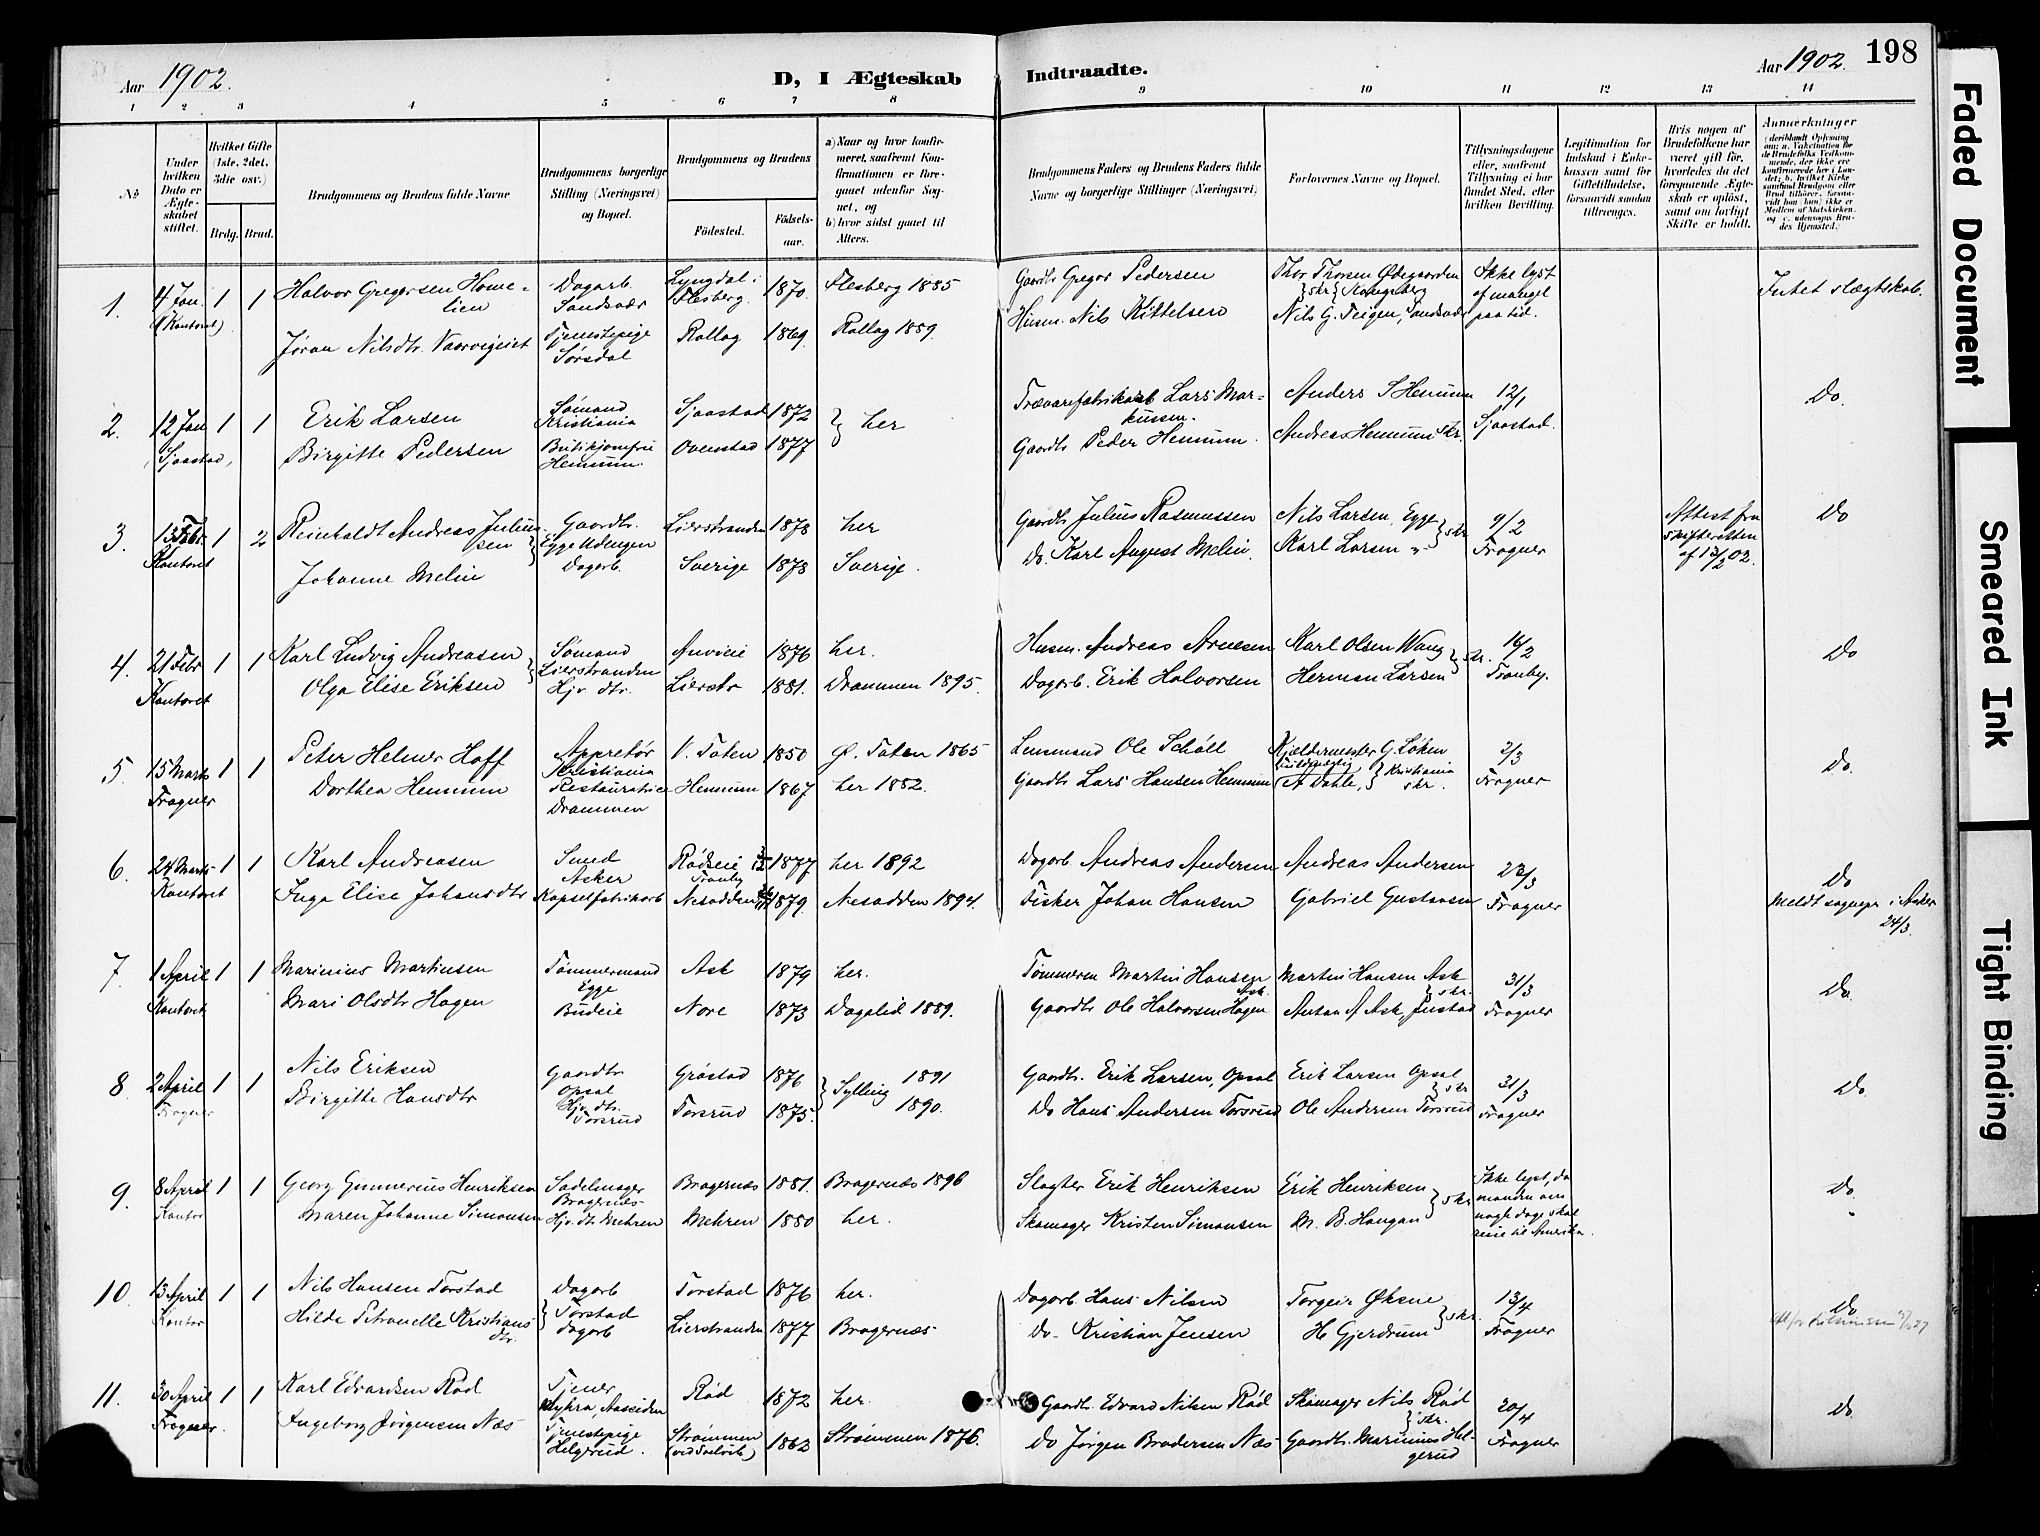 Aar 1902.
D, I Ægteskab
Indtraadte.
Aar 1902. 198
1 2 3 4 5 6 7 8 9 10 11 12 13 14
No
Under hvilken Dato er Ægteskabet stiftet.
Hvilket Gifte (1ste, 2det, 3die osv.)
Brdg. Brud.
Brudgommens og Brudens fulde Navne
Brudgommens borgerlige Stilling (Næringsvei) og Bopæl.
Brudgommens og Brudens
Fødested.
Fødselsaar.
a) Naar og hvor konfirmeret, saafremt Konfirmationen er foregaaet udenfor Sognet, og
b) hvor sidst gaaet til Alters.
Brudgommens Faders og Brudens Faders fulde Navne og borgerlige Stillinger (Næringsvei)
Forlovernes Navne og Bopæl.
Tillysningsdagene eller, saafremt Tillysning ei har fundet Sted, efter hvilken Bevilling.
Legitimation for Indskud i Enkekassen samt for Giftetilladelse, forsaavidt saadan tiltrænges.
Hvis nogen af Brudefolkene har været gift før, hvorledes da det foregaaende Ægteskab er opløst, samt om lovligt Skifte er holdt.
Anmærkninger (deriblandt Oplysning om: a. Vakcination for de Brudefolks Vedkommende, der ikke ere konfirmerede her i Landet; b. hvilket Kirkesamfund Brudgom eller Brud tilhører, forsaavidt han (hun) ikke er Medlem af Statskirken, og c. udensogns Brudes Hjemsted.)
1. 4 Jan (Kontoret) 1 1 Halvor Gregersen Homelien Dagarb. Sandsvær Lyngdal i Flesberg. 1870. Flesberg 1885 Gaardbr. Gregor Pedersen Thor Thorsen Ødegaarden Kongsberg skr Ikke lyst af mangel paa tid. Intet slægtskab.
Jøran Nilsdtr. Vaarvigeiet Tjenestepige Sørsdal Rollag 1869. Rollag 1889. Husm. Nils Kittelsen Nils G. Teigen, Sandsvær
2. 12 Jan (Sjaastad) 1 1 Erik Larsen Sømand Kristiania Sjaastad 1872 her Trævarefabrikant Lars Markussen. Anders S Hennum 12/1 Sjaastad. Do.
Birgitte Pedersen Butikjomfru Hennum. Ovenstad 1877 Gaardbr. Peder Hennum. Andreas Hennum skr.
3. 13 Febr. Kontoret 1 2 Reinholdt Andreas Juliussen Gaardbr. Egge Udengen Lierstranden 1878 her Gaardb. Julius Rasmussen Nils Larsen, Egge skr 9/2 Frogner Attest fra Skifteretten af 13/2 02. Do
Johanne Melin Dagarb. Sverige 1878 Sverige. Do. Karl August Melin. Karl Larsen "
4. 21 Febr Kontoret 1 1 Karl Ludvig Andreasen Sømand Lierstranden 1876 her. Husm. Andreas Arnesen Karl Olsen Wang skr. 16/2 Tranby. Do
Olga Elise Eriksen Hjv. dtr. Lierstr 1881. Drammen 1895. Dagarb. Erik Halvorsen Herman Larsen
5. 15 Marts Frogner 1 1 Peter Helmer Hoff Appretør Kristiania V. Toten 1850 Ø. Toten 1865 Lensmand Ole Schöll Kjældermester G. Løken 2/3 Frogner Do.
Dorthea Hennum Restauratrice Drammen Hennum 1867 her 1882. Gaardb. Lars Hansen Hennum A Dahle, Kristiania skr.
6. 24 Marts Kontoret 1 1 Karl Andreasen Smed Asker Rødseie Tranby 1877 her 1892 Dagarb Andreas Andersen Andreas Andersen 23/3 Frogner Do
Inga Elise Johansdtr Kapselfabrikarb Nesodden 1879. Nesodden 1894. Fisker Johan Hansen Gabriel Gustavsen Meldt sognepr i Asker 24/3.
7. 1 April Kontoret 1 1 Marinius Martinsen Tømmermand Egge Ask 1879 her. Tømmerm Martin Hansen Ask. Martin Hansen Ask skr. 31/3 Frogner Do.
Mari Olsdtr Hagen Budeie Nore 1873 Dagalid 1889. Gaardbr Ole Halvorsen Hagen Anton A Ask, Justad
8. 2 April Frogner 1 1 Nils Eriksen Gaardbr Opsal Grøstad 1876 Sylling 1891 Gaardbr. Erik Larsen, Opsal Erik Larsen Opsal skr 31/3 Frogner Do.
Birgitte Hansdtr Hjv. dtr. Torsrud Torsrud 1875. 1890. Do Hans Andersen Torsrud Ole Andersen Torsrud
9. 8 April Kontor 1 1 Georg Gunnerius Henriksen Sadelmager Bragernæs Bragernæs 1881. Bragernæs 1896 Slagter Erik Henriksen Erik Henriksen skr Ikke lyst, da manden om nogle dage skal reise til Amerika. Do.
Maren Johanne Simonsen Hjv. dtr. Mehren Mehren 1880 her. Skomager Kristen Simonsen M. B. Haugan
10. 13 April Kontor 1 1 Nils Hansen Torstad Dagarb Torstad Torstad 1876 her. Dagarb. Hans Nilsen Torgeir Øksne skr. 13/4 Frogner Do
Hilde Petronelle Kristiansdtr. dagarb Lierstranden 1877 Bragernæs Do. Kristian Jensen H. Gjerdrum
11. 30 April Frogner 1 1 Karl Edvardsen Rød Tjener Myhra, Aaseiden Rød 1872 her. Gaardb. Edvard Nilsen Rød Skomager Nils Rød skr. 20/4 Frogner Do.
Ingeborg Jørgensen Næs Tjenestepige Helgerud. Strømmen (ved Svelvik) 1862 Strømmen 1876. Do Jørgen Brodersen Næs Gaardbr. Marinius Helgerud
Faded Document
Smeared Ink
Tight Binding